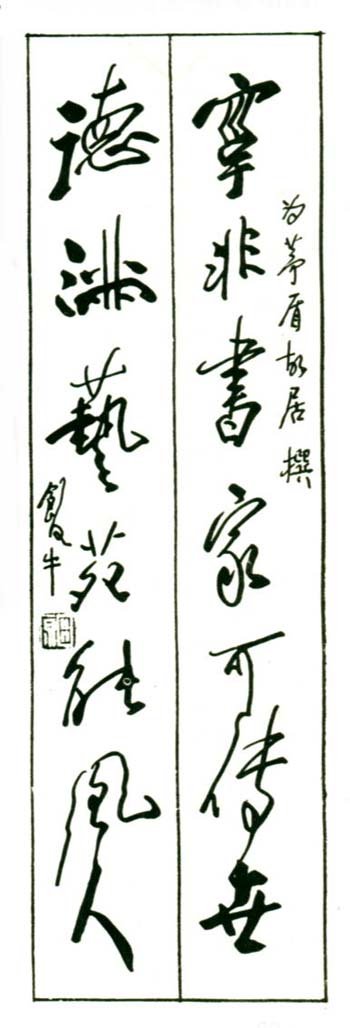 为茅盾故居撰
寧非書家可傳世
德藝苑能風人
牛